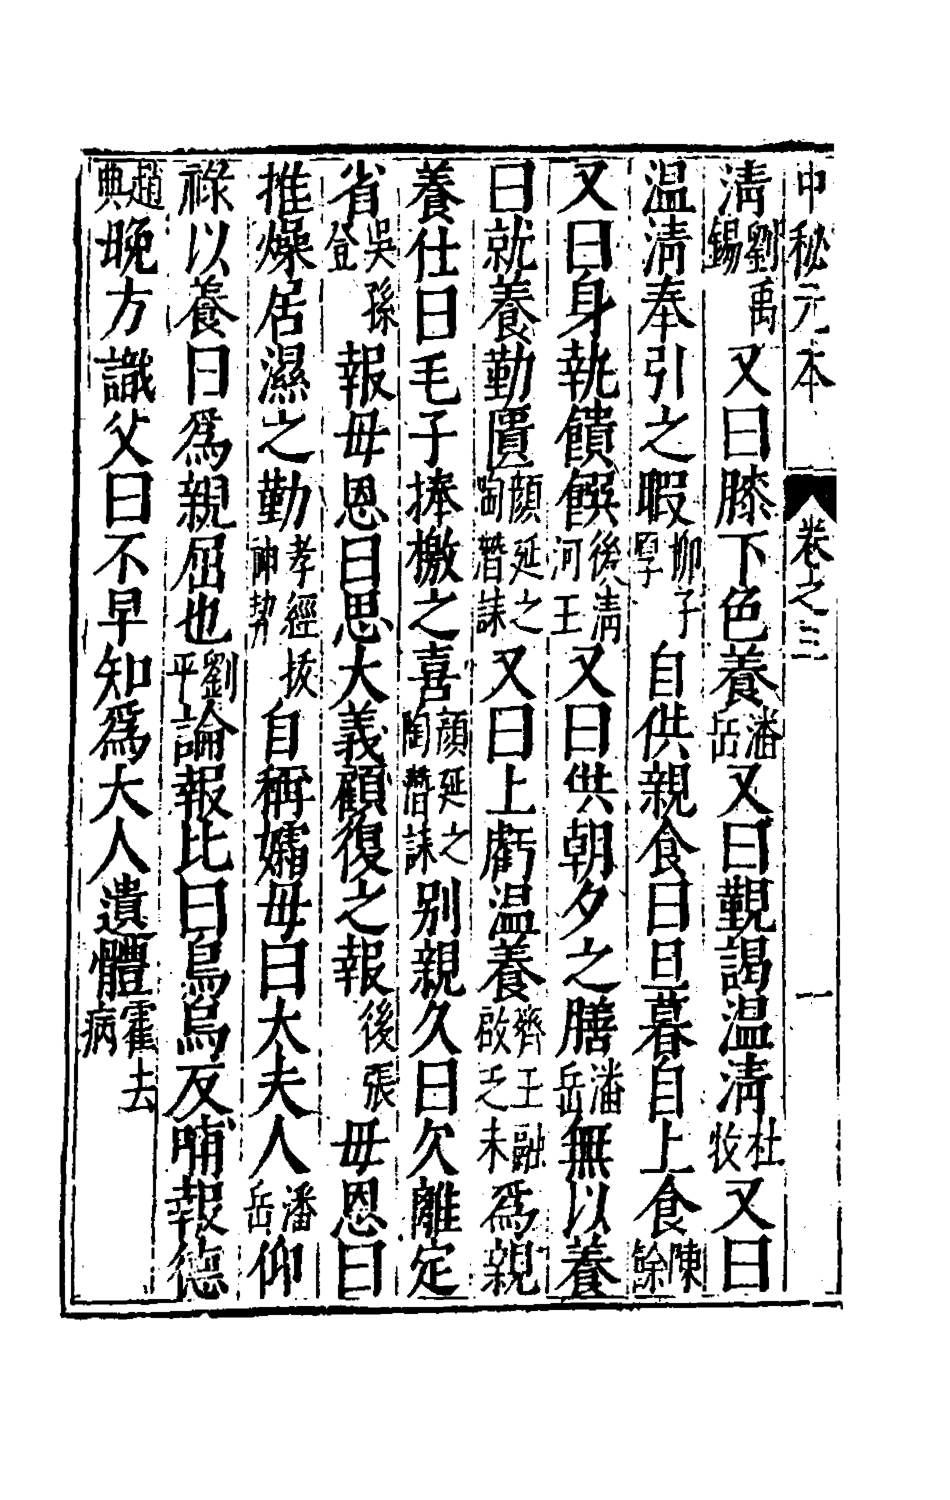 中秘元本 卷之三 一
淸劉禹錫又曰膝下色養潘岳又曰覲謁温淸杜牧又曰
温淸奉引之暇柳子厚自供親食曰旦暮自上食陳餘
又曰身執饋饌後淸河王又曰供朝夕之膳潘岳無以養
曰就養勤匱顔延之陶潛誄又曰上虧温養齊王融啟乏未爲親
養仕曰毛子捧檄之喜顔延之陶潛誄别親久曰欠離定
省吳孫登報毋恩曰思大義顧復之報後張毋恩曰
推燥居濕之勤孝經援神契自稱孀毋曰太夫人潘岳仰
祿以養曰爲親屈也劉平論報比曰烏烏反哺報德
趙典晚方識父曰不早知爲大人遺體霍去病